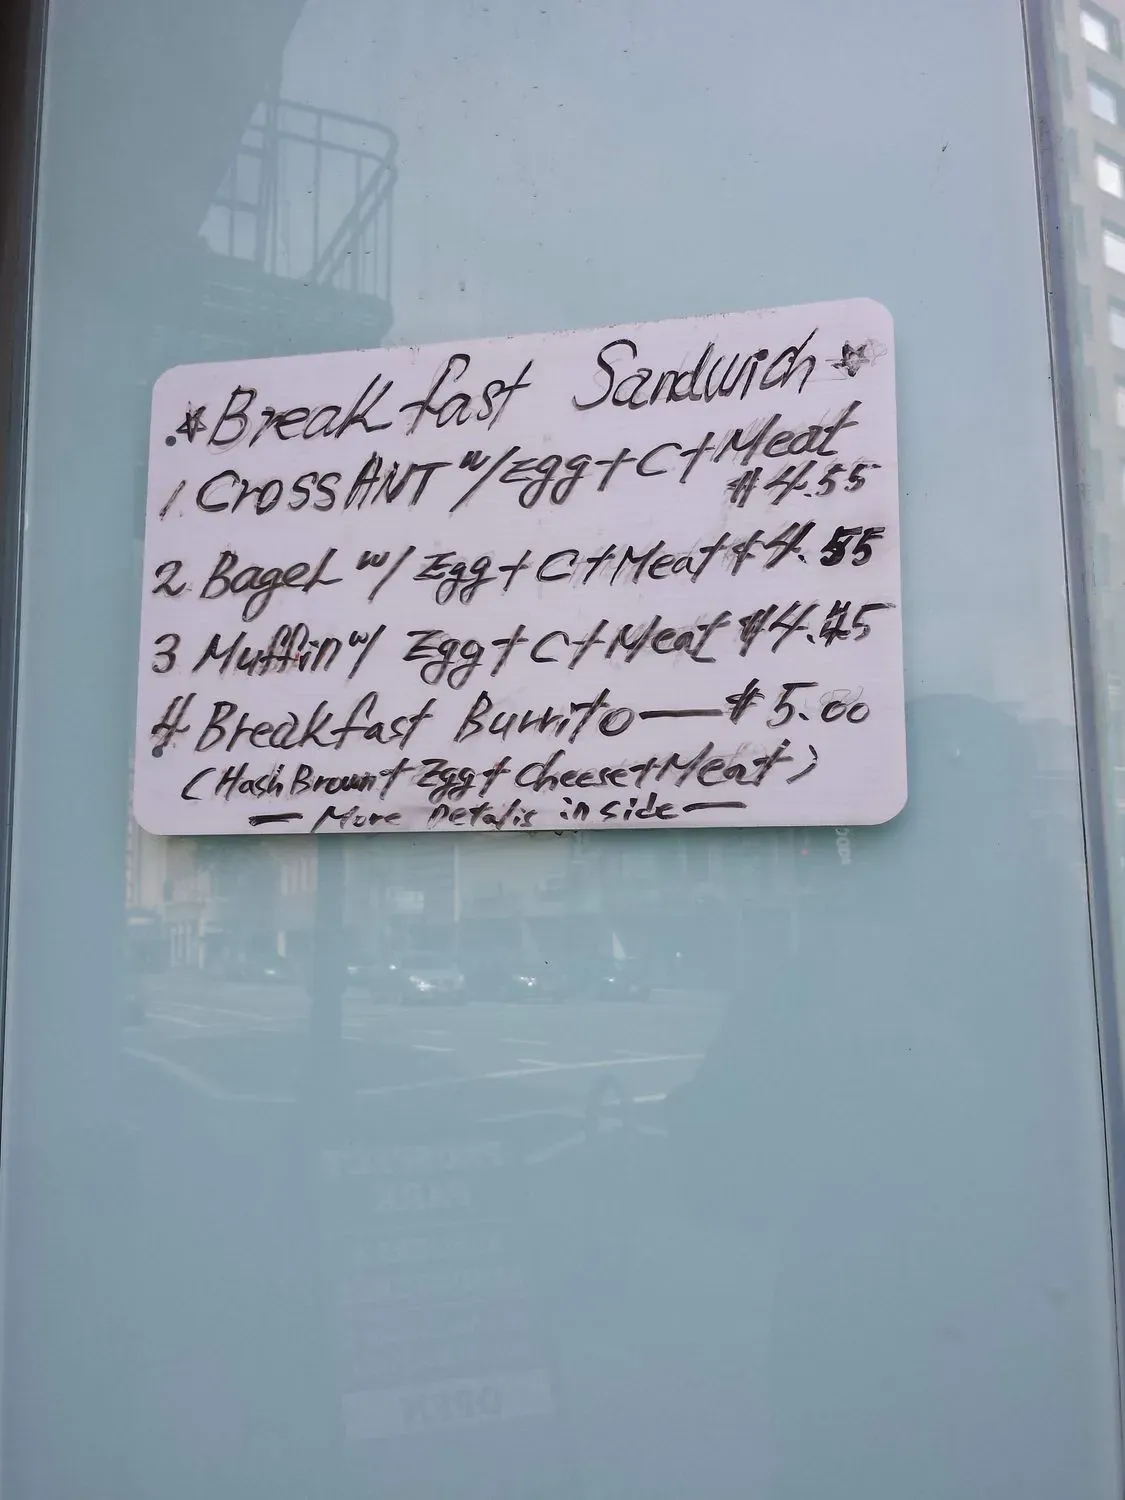 ☆Breakfast Sandwich☆
1. CrossANT w/Egg+C+Meat
$4.55
2 Bagel w/ Egg+C+Meat $4.55
3 Muffin w/ Egg+C+Meat $4.45
4 Breakfast Burrito—$5.00
(Hash Brown+Egg+Cheese+Meat)
— More Details inside —
PARK
OPEN